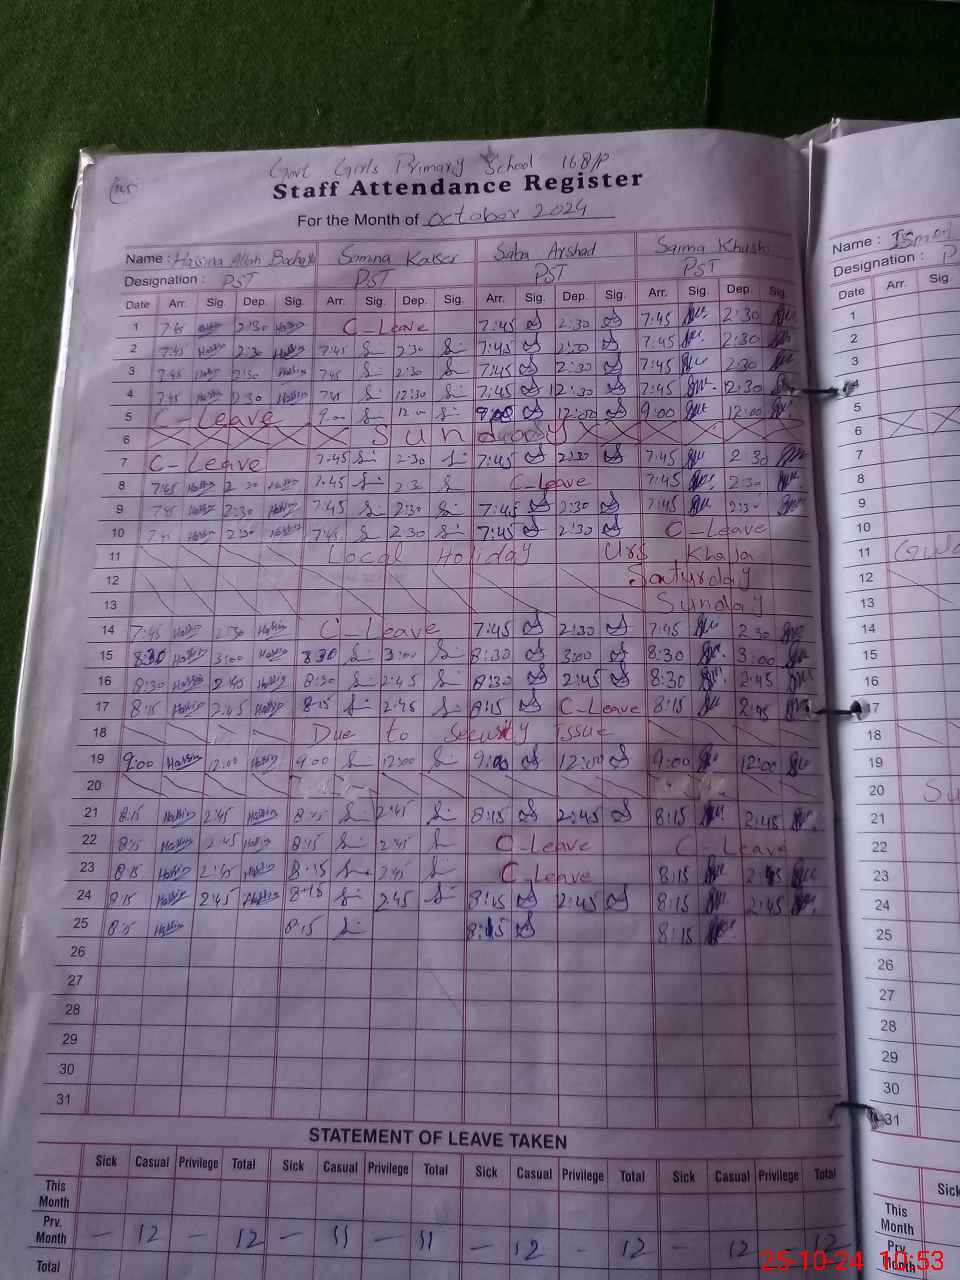 Govt Girls Primary School 168/P
145
Staff Attendance Register
For the Month of October 2024
Name : Hassina Allah Samina Kaiser Saba Arshad Saima Khushi
Designation : PST PST PST PST
Date Arr. Sig. Dep. Sig. Arr. Sig. Dep. Sig. Arr. Sig. Dep. Sig. Arr. Sig. Dep. Sig.
1 2:30 C-Leave 7:45 2:30 7:45 2:30
2 7:45 2:30 7:45 2:30 7:45 2:30 7:45 2:30
3 7:45 2:30 7:45 2:30 7:45 2:30 7:45 2:30
4 7:45 2:30 7:45 12:30 7:45 12:30 7:45 12:30
5 C-Leave 9:00 12:00 9:00 12:00 9:00 12:00
6 Sunday
7 C-Leave 7:45 2:30 7:45 2:30 7:45 2:30
8 7:45 2:30 7:45 2:30 C-Leave 7:45 2:30
9 7:45 2:30 7:45 2:30 7:45 2:30 7:45 2:30
10 7:45 2:30 7:45 2:30 7:45 2:30 C-Leave
11 Local Holiday Urs Khaja
12 Saturday
13 Sunday
14 7:45 2:30 C-Leave 7:45 2:30 7:45 2:30
15 8:30 3:00 8:30 3:00 8:30 3:00 8:30 3:00
16 8:30 2:45 8:30 2:45 8:30 2:45 8:30 2:45
17 8:15 2:45 8:15 2:45 8:15 C-Leave 8:15 2:45
18 Due to Security Issue
19 9:00 12:00 9:00 12:00 9:00 12:00 9:00 12:00
20
21 8:15 2:45 8:15 2:45 8:15 2:45 8:15 2:45
22 8:15 2:45 8:15 2:45 C-Leave C-Leave
23 8:15 2:45 8:15 2:45 C-Leave 8:15 2:45
24 8:15 2:45 8:15 2:45 8:15 2:45 8:15 2:45
25 8:15 8:15 8:15 8:15
26
27
28
29
30
31
STATEMENT OF LEAVE TAKEN
Sick Casual Privilege Total Sick Casual Privilege Total Sick Casual Privilege Total Sick Casual Privilege Total
This Month
Prv. Month — 12 - 12 - 11 - 11 - 12 - 12 - 12 - 12
Total
Name :
Designation : P
Date Arr. Sig.
1
2
3
4
5
6
7
8
9
10
11
12
13
14
15
16
17
18
19
20 Su
21
22
23
24
25
26
27
28
29
30
31
Sick
This Month
Prv. Month
25-10-24 10:53